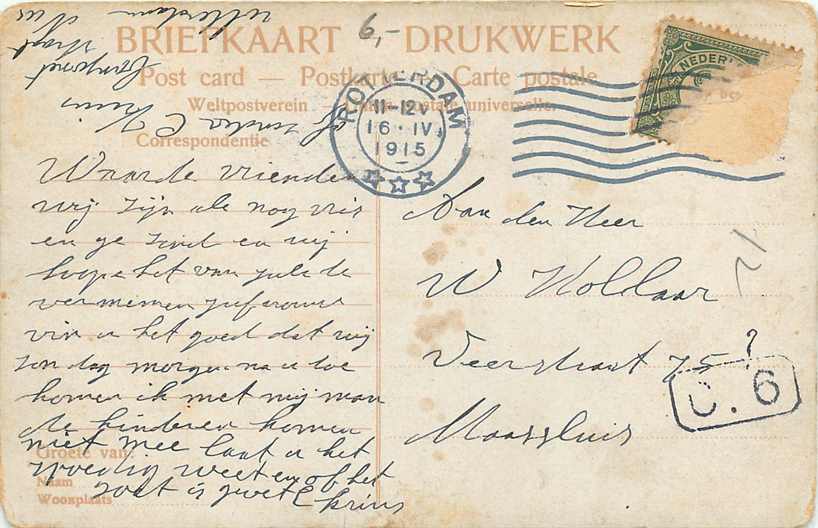 BRIEFKAART DRUKWERK
Post card — Postkarte — Carte postale
Weltpostverein postale universelle
Correspondentie
6,-
ROTTERDAM
11-12V
16·IV
1915
NEDER
Waarde vrienden
wij zijn ale nog vris
en ge zond en wij
hoope het van jule te
vernemen jufvrouw
vin u het goed dat wij
zon dag morgen na u toe
komen ik met mij man
de kinderen komen
niet mee laat u het
spoedig weet en of het
zoet is groet C Prins
Aan den Heer
W Kollaar
Veerstraat 75?
Maassluis
12
C.6
Groete van:
Naam
Woonplaats